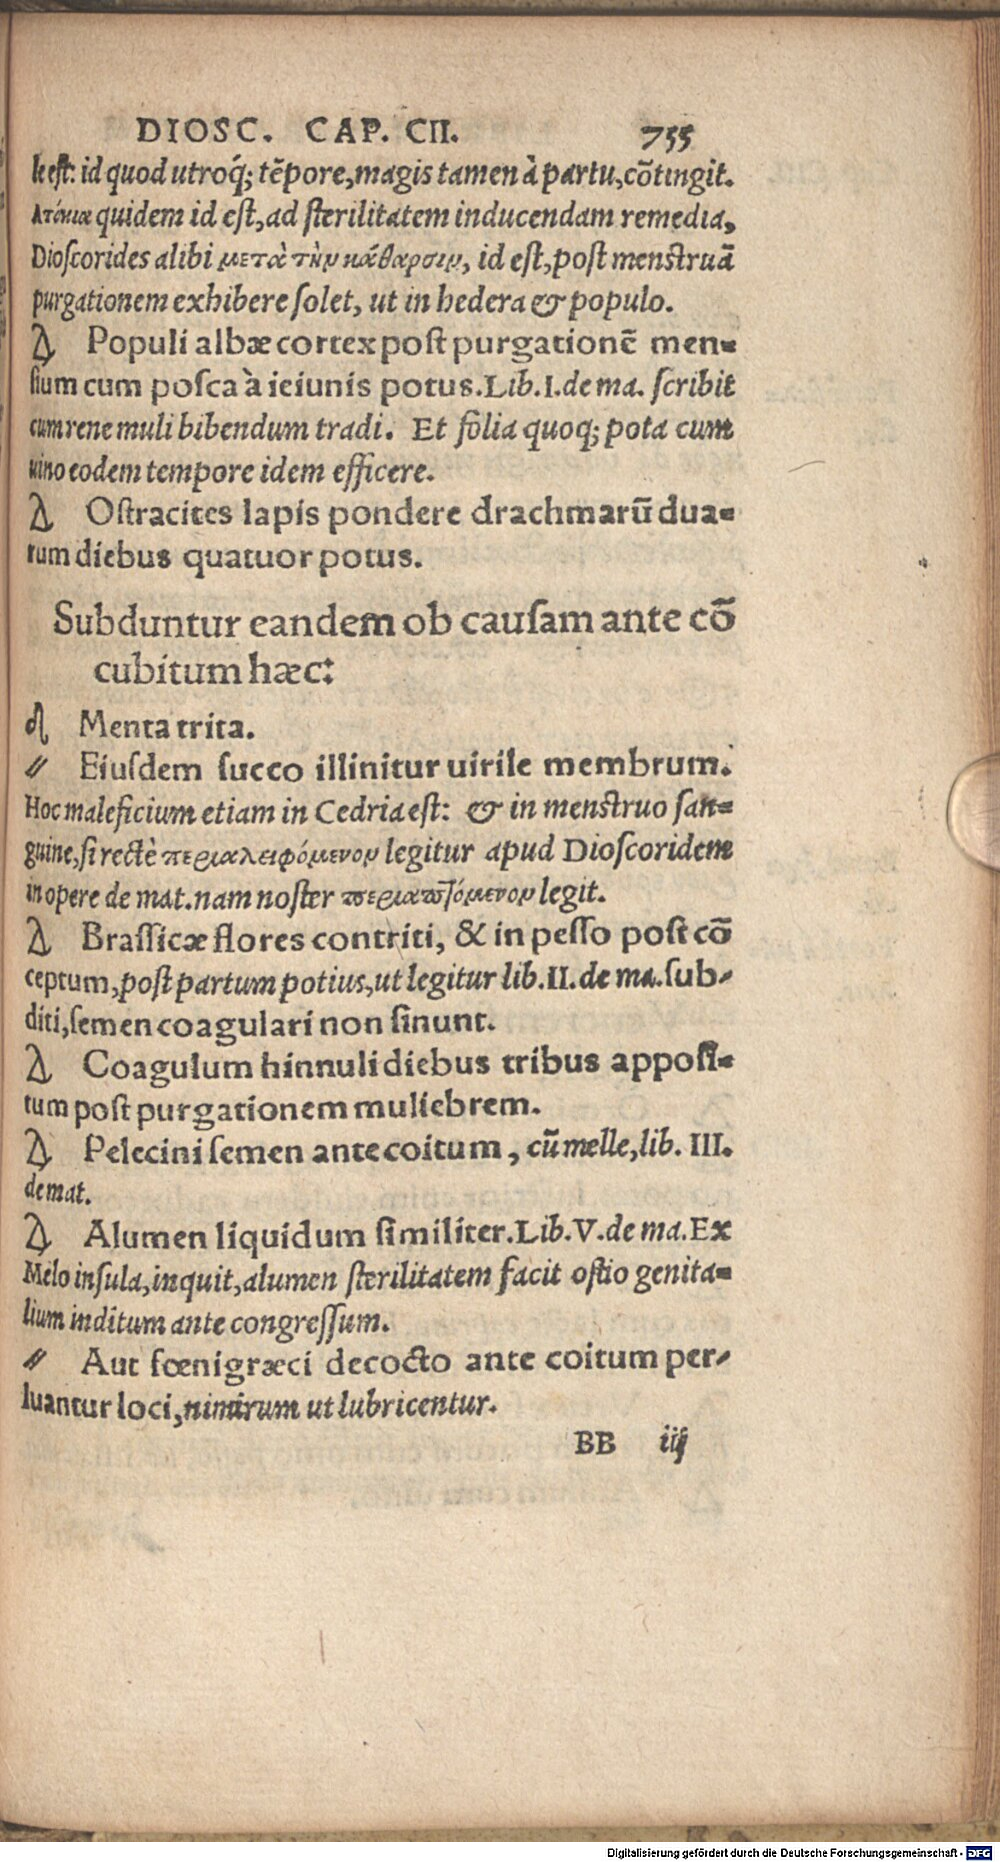 DIOSC. CAP. CII. 755
le est: id quod utroq́; tēpore, magis tamen à partu, cōtingit.
Ἀτόκια quidem id est, ad sterilitatem inducendam remedia,
Dioscorides alibi μετὰ τὴν κάθαρσιν, id est, post menstruā
purgationem exhibere solet, ut in hedera & populo.
Populi albæ cortex post purgationē men-
sium cum posca à ieiunis potus. Lib. I. de ma. scribit
cum rene muli bibendum tradi. Et folia quoq; pota cum
uino eodem tempore idem efficere.
Ostracites lapis pondere drachmarū dua-
rum diebus quatuor potus.
Subduntur eandem ob causam ante cō
cubitum hæc:
Menta trita.
〃 Eiusdem succo illinitur uirile membrum.
Hoc maleficium etiam in Cedria est: & in menstruo san-
guine, si rectè περιαλειφόμενον legitur apud Dioscoridem
in opere de mat. nam noster περιαπτόμενον legit.
Brassicæ flores contriti, & in pesso post cō
ceptum, post partum potius, ut legitur lib. II. de ma. sub-
diti, semen coagulari non sinunt.
Coagulum hinnuli diebus tribus apposi-
tum post purgationem muliebrem.
Pelecini semen ante coitum, cū melle, lib. III.
de mat.
Alumen liquidum similiter. Lib. V. de ma. Ex
Melo insula, inquit, alumen sterilitatem facit ostio genita-
lium inditum ante congressum.
〃 Aut fœnigræci decocto ante coitum per-
luantur loci, nimirum ut lubricentur.
BB iij
Digitalisierung gefördert durch die Deutsche Forschungsgemeinschaft - DFG